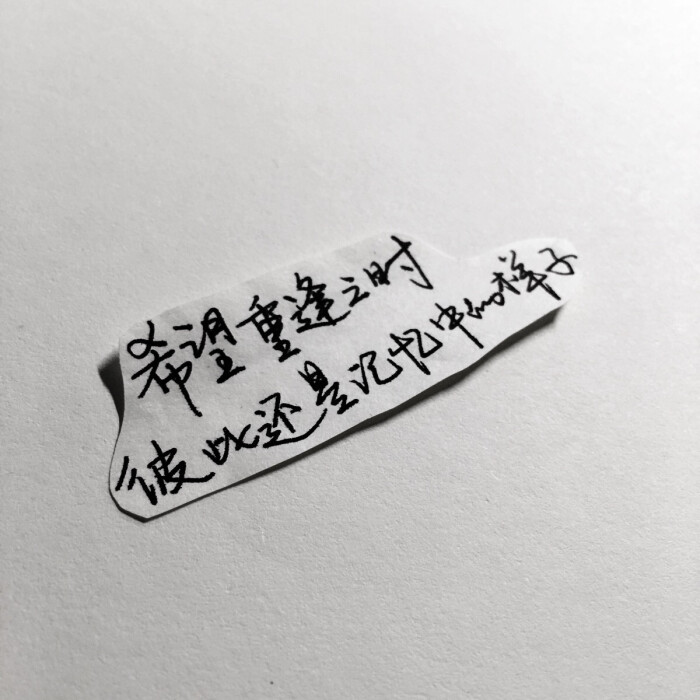 希望重逢之时
彼此还是记忆中的样子